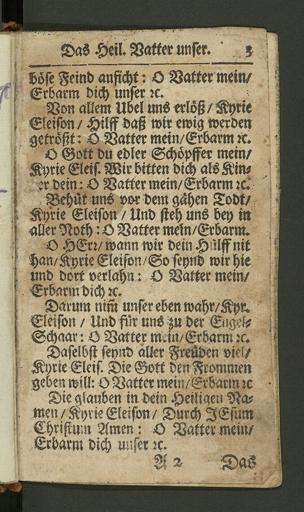 Das Heil. Vatter unser. 3
böse Feind anficht: O Vatter mein/
Erbarm dich unser ꝛc.
Von allem Ubel uns erlöß/ Kyrie
Eleison/ Hilff daß wir ewig werden
getrößt: O Vatter mein/ Erbarm ꝛc.
O Gott du edler Schöpffer mein/
Kyrie Eleis. Wir bitten dich als Kin-
der dein: O Vatter mein/ Erbarm ꝛc.
Behüt uns vor dem gähen Todt/
Kyrie Eleison/ Und steh uns bey in
aller Noth: O Vatter mein/ Erbarm.
O HErr/ wann wir dein Hülff nit
han/ Kyrie Eleison/ So seynd wir hie
und dort verlahn: O Vatter mein/
Erbarm dich ꝛc.
Darum nim̃ unser eben wahr/ Kyr.
Eleison/ Und für uns zu der Engel-
Schaar: O Vatter mein/ Erbarm ꝛc.
Daselbst seynd aller Freüden viel/
Kyrie Eleis. Die Gott den Frommen
geben will: O Vatter mein/ Erbarm ꝛc
Die glauben in dein Heiligen Na-
men/ Kyrie Eleison/ Durch JEsum
Christum Amen: O Vatter mein/
Erbarm dich unser ꝛc.
A 2 Das